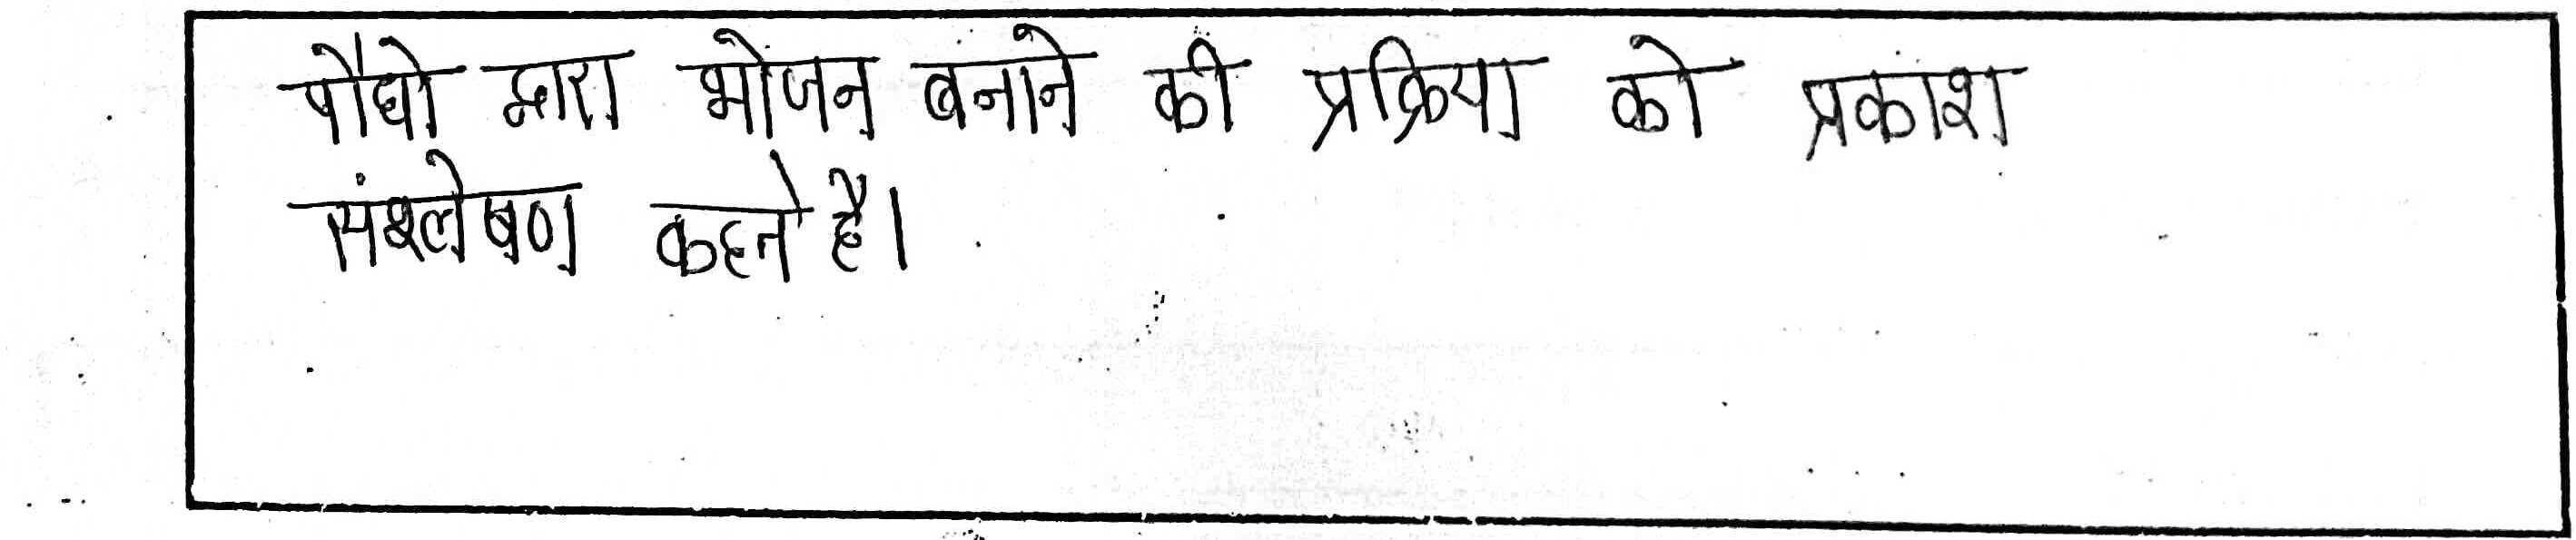 पौधो द्वारा भोजन बनाने की प्रक्रिया को प्रकाश
संश्लेषण कहते है।